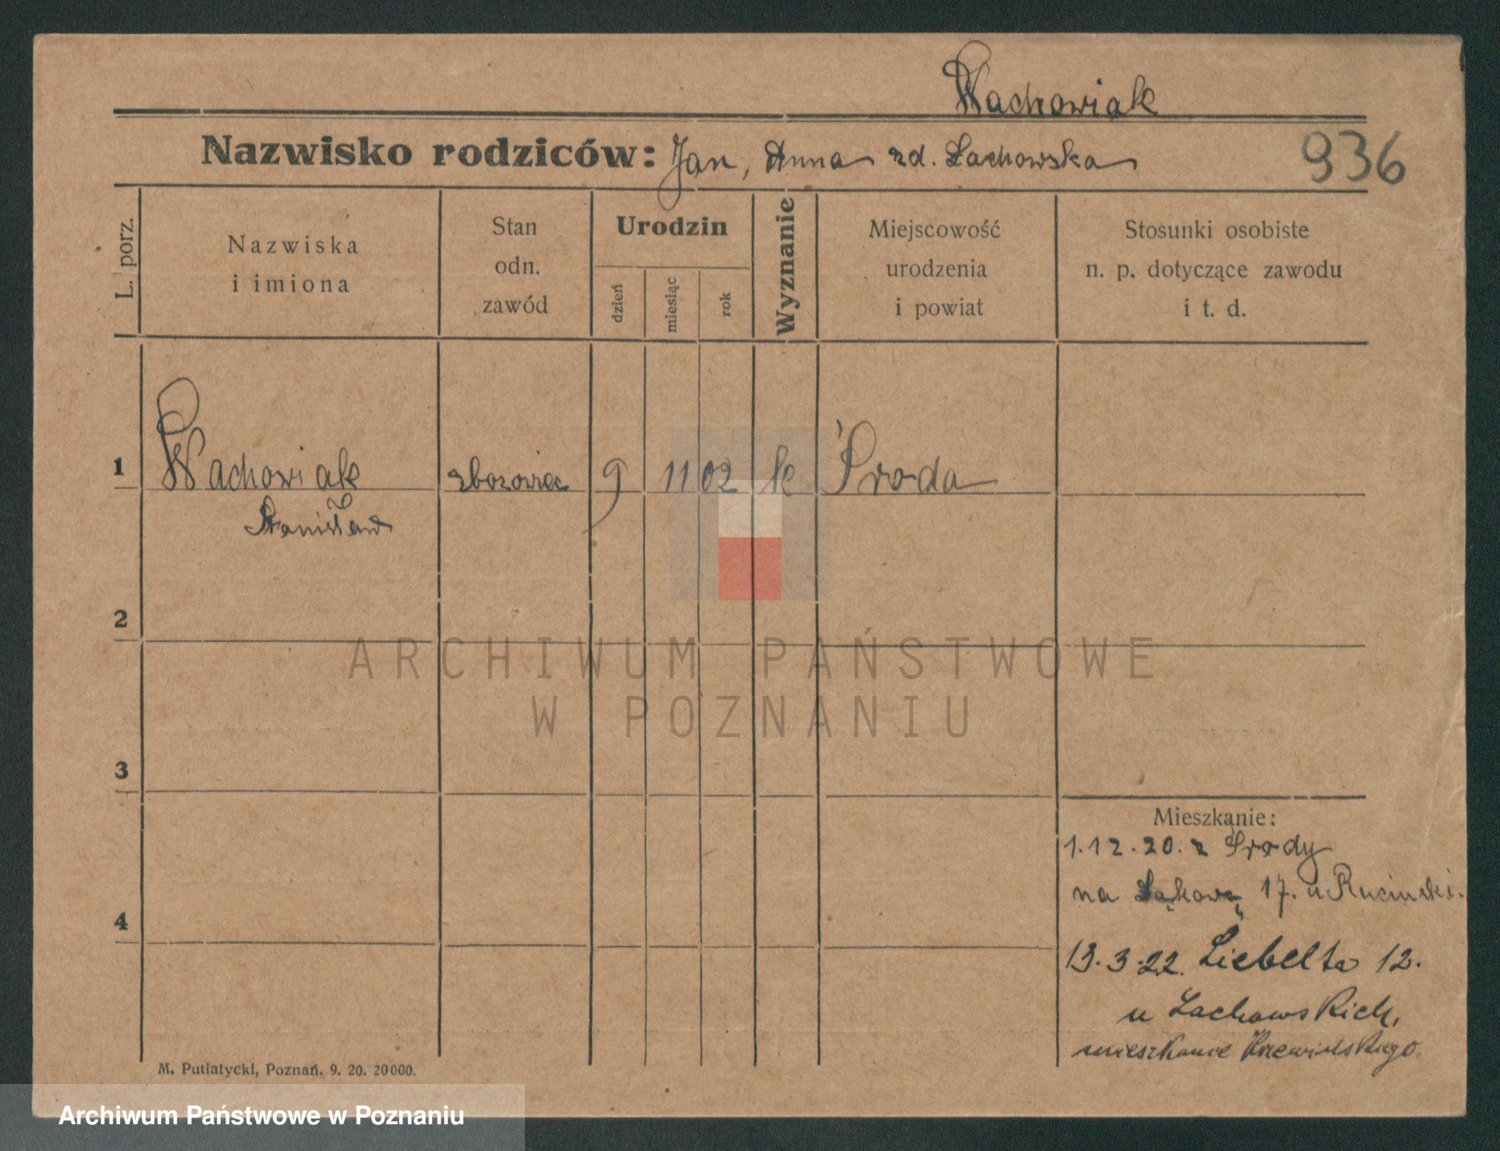 Wachowiak
Nazwisko rodziców: Jan, Anna zd. Lachowska
936
L. porz.
Nazwiska
i imiona
Stan
odn.
zawód
Urodzin
dzień
miesiąc
rok
Wyznanie
Miejscowość
urodzenia
i powiat
Stosunki osobiste
n. p. dotyczące zawodu
i t. d.
1 Wachowiak zbożowiec 9 11 02 k Środa
Stanisław
2
ARCHIWUM PAŃSTWOWE
W POZNANIU
3
Mieszkanie:
1.12.20. z Środy
na Łąkową 17. u Rucinski.
4
13.3.22. Liebelta 12.
u Lachowskich,
mieszkanie
M. Putiatycki, Poznań. 9. 20. 20000.
Archiwum Państwowe w Poznaniu